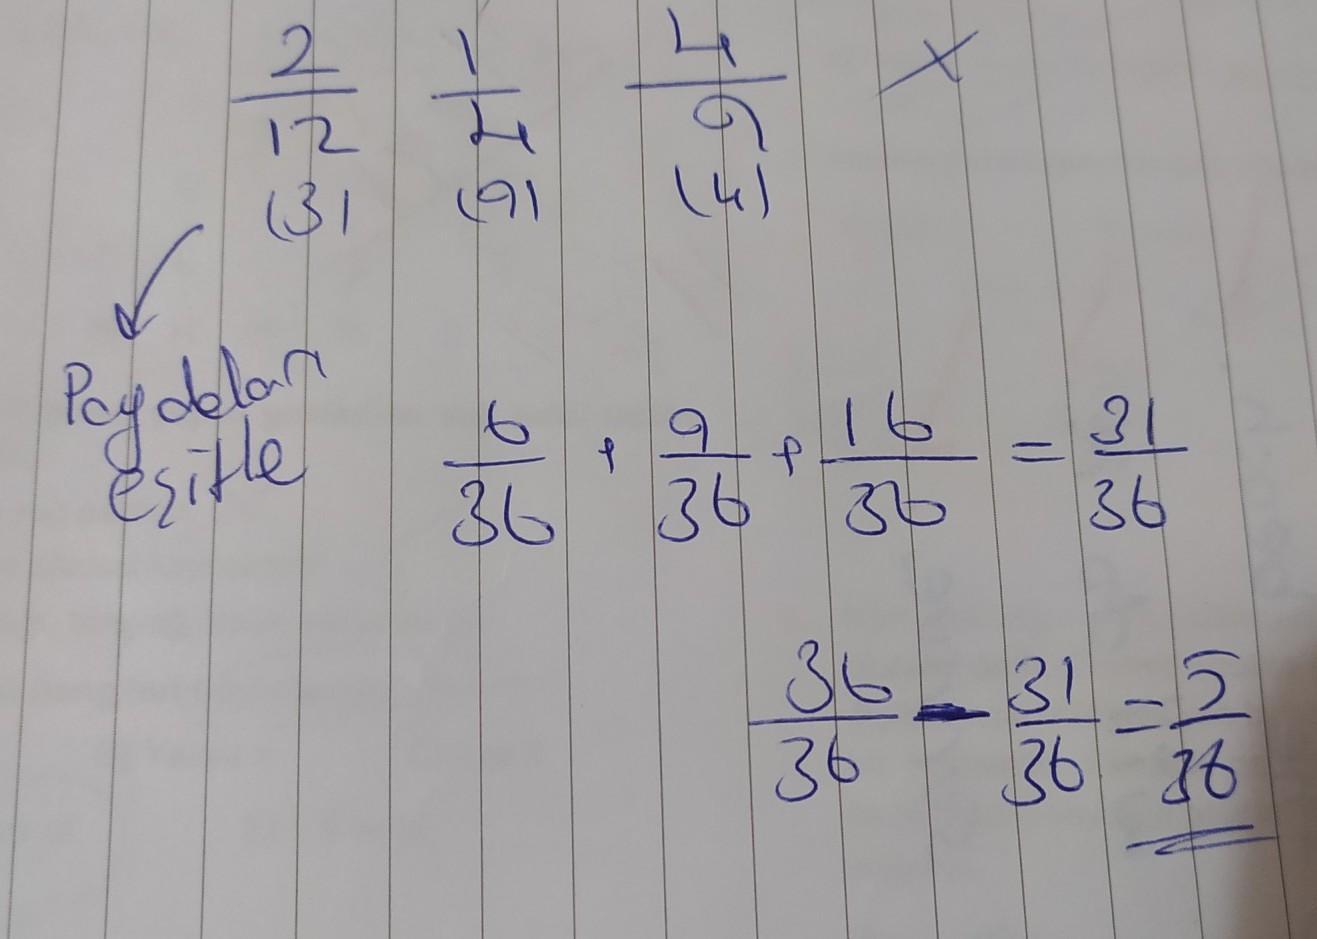 2/12 1/4 4/9 X
(3) (9) (4)
Paydaları eşitle
6/36 + 9/36 + 16/36 = 31/36
36/36 - 31/36 = 5/36